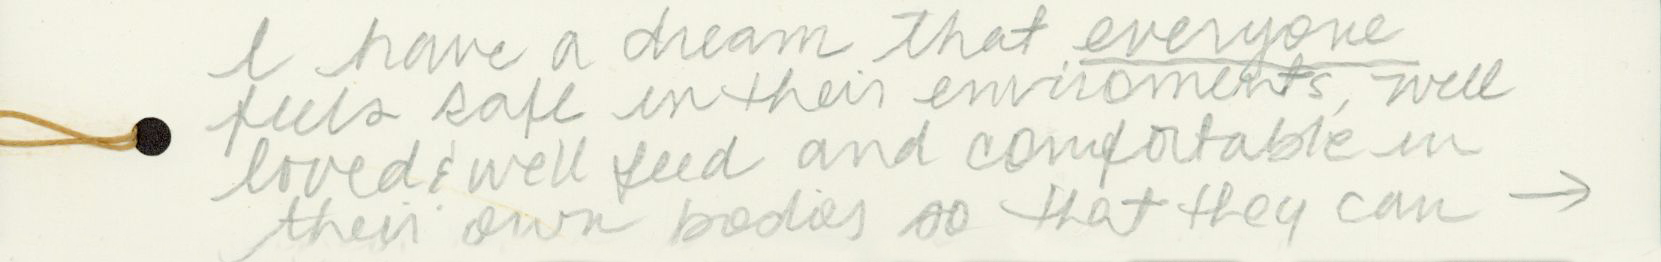 I have a dream that everyone
feels safe in their enviroments, well
loved & well feed and comfortable in
their own bodies so that they can →